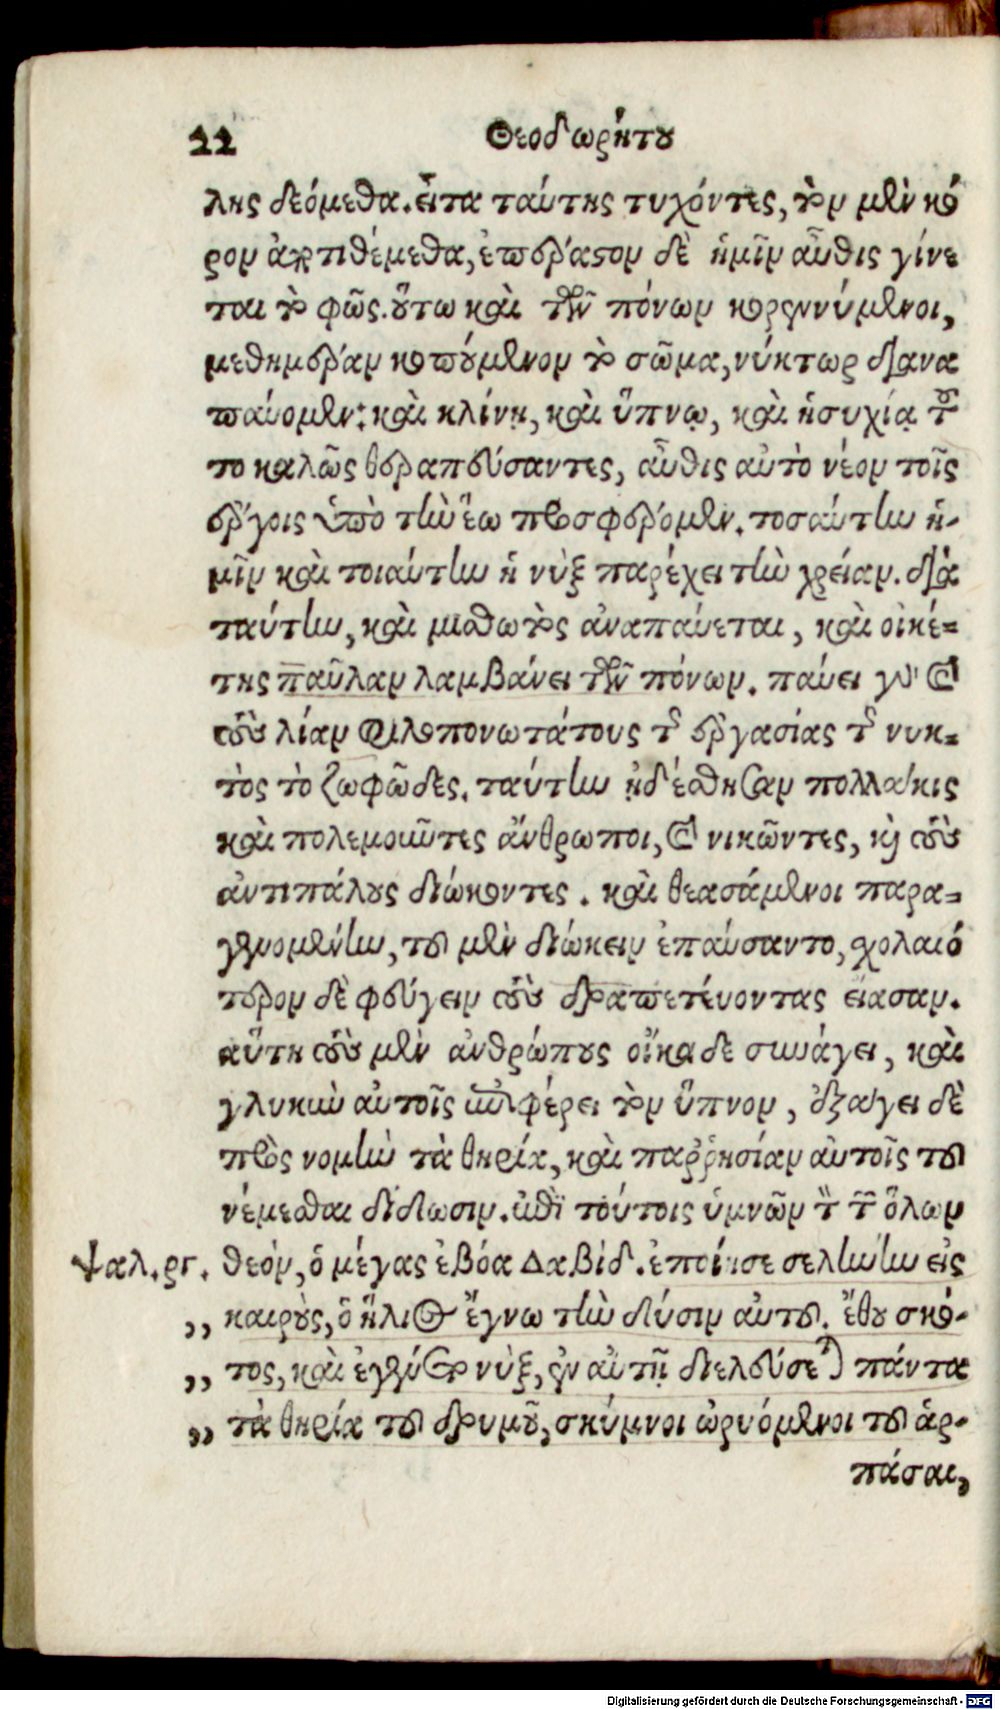 22 Θεοδωρήτου
λης δεόμεθα. εἶτα ταύτης τυχόντες, τὸν μὲν κό
ρον ἀποτιθέμεθα, ἐπέραστον δὲ ἡμῖν αὖθις γίνε
ται τὸ φῶς. οὕτω καὶ τῶν πόνων κορεννύμενοι,
μεθημέραν κοπούμενον τὸ σῶμα, νύκτωρ διανα
παύομεν: καὶ κλίνῃ, καὶ ὕπνῳ, καὶ ἡσυχίᾳ τοῦ
το καλῶς θεραπεύσαντες, αὖθις αὐτὸ νέον τοῖς
ἔργοις ὑπὸ τὴν ἕω προσφέρομεν. τοσαύτην ἡ-
μῖν καὶ τοιαύτην ἡ νὺξ παρέχει τὴν χρείαν. διὰ
ταύτην, καὶ μισθωτὸς ἀναπαύεται, καὶ οἰκέ-
της παῦλαν λαμβάνει τῶν πόνων. παύει γὰρ καὶ
τοὺς λίαν φιλοπονωτάτους τῆς ἐργασίας τῆς νυκ-
τὸς τὸ ζοφῶδες. ταύτην ᾐδέσθησαν πολλάκις
καὶ πολεμοῦντες ἄνθρωποι, καὶ νικῶντες, καὶ τοὺς
ἀντιπάλους διώκοντες. καὶ θεασάμενοι παρα-
γενομένην, τοῦ μὲν διώκειν ἐπαύσαντο, σχολαιό
τερον δὲ φεύγειν τοὺς δραπετεύοντας εἴασαν.
αὕτη τοὺς μὲν ἀνθρώπους οἴκαδε συνάγει, καὶ
γλυκὺν αὐτοῖς ἐπιφέρει τὸν ὕπνον, ἐξάγει δὲ
πρὸς νομὴν τὰ θηρία, καὶ παῤῥησίαν αὐτοῖς τοῦ
νέμεσθαι δίδωσιν. ἐπὶ τούτοις ὑμνῶν τὸν τῶν ὅλων
Ψαλ. ργ. θεόν, ὁ μέγας ἐβόα Δαβίδ. ἐποίησε σελήνην εἰς
,, καιροὺς, ὁ ἥλιος ἔγνω τὴν δύσιν αὐτοῦ. ἔθου σκό-
,, τος, καὶ ἐγένετο νὺξ, ἐν αὐτῇ διελεύσεται πάντα
,, τὰ θηρία τοῦ δρυμοῦ, σκύμνοι ὠρυόμενοι τοῦ ἁρ-
πάσαι,
Digitalisierung gefördert durch die Deutsche Forschungsgemeinschaft - DFG